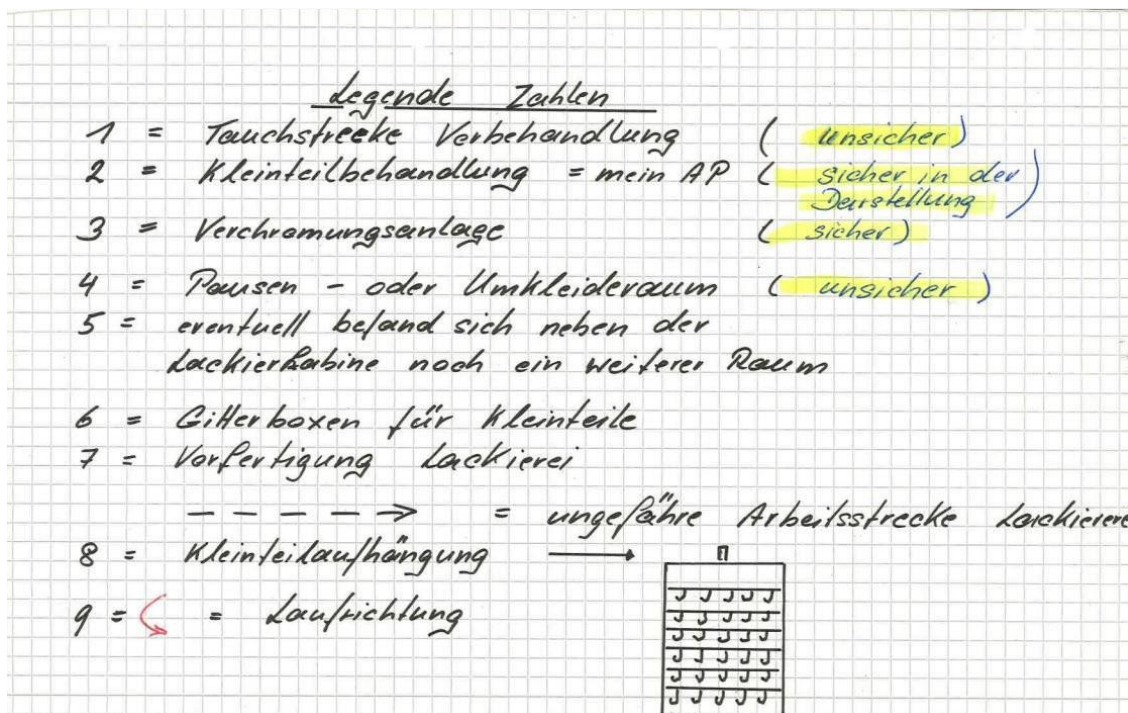 Legende Zahlen
1 = Tauchstrecke Vorbehandlung ( unsicher )
2 = Kleinteilbehandlung = mein AP ( sicher in der
Darstellung )
3 = Verchromungsanlage ( sicher )
4 = Pausen - oder Umkleideraum ( unsicher )
5 = eventuell befand sich neben der
Lackierkabine noch ein weiterer Raum
6 = Gitterboxen für Kleinteile
7 = Vorfertigung Lackierei
– – – – → = ungefähre Arbeitsstrecke Lackiere
8 = Kleinteilaufhängung →
9 = = Laufrichtung